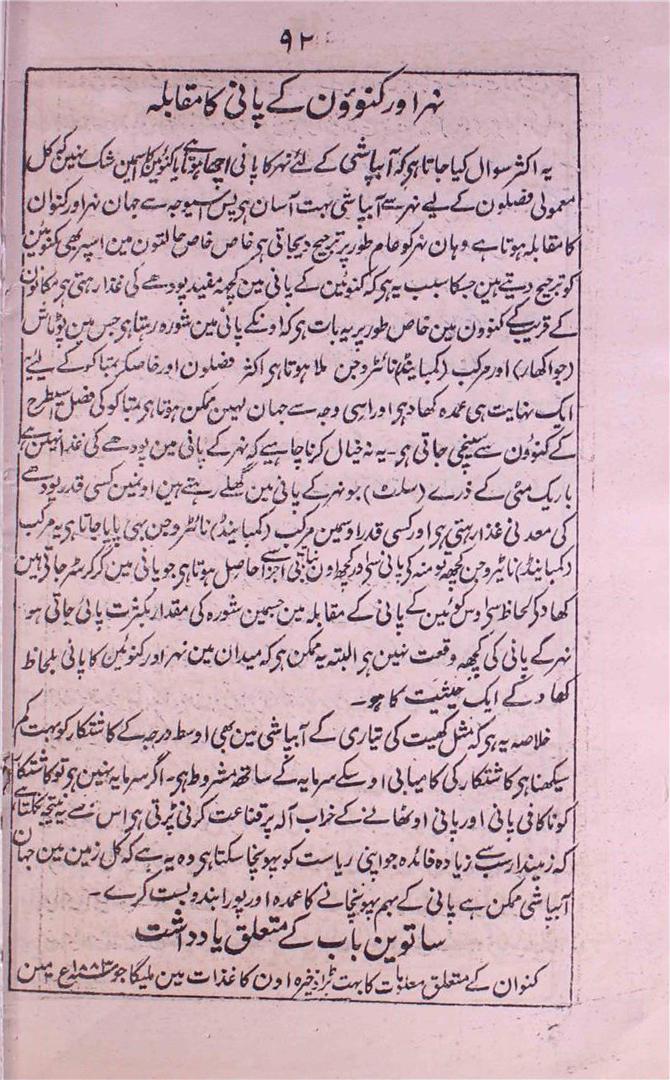 ۹۲
نہر اور کنوؤن کے پانی کا مقابلہ
یہ اکثر سوال کیا جاتا ہی کہ آبپاشی کے لئے نہر کا پانی اچھا ہوتا ہے یا کنوئین کا اسمین شک نہین کہ کل
معمولی فصلون کے لیے نہر سے آبپاشی بہت آسان ہی پس اسیوجہ سے جہان نہر اور کنوان
کا مقابلہ ہوتا ہے وہان نہر کو عام طور پر ترجیح دیجاتی ہی خاص خاص حالتون مین اسپر بھی کنوئین
کو ترجیح دیتے ہین جسکا سبب یہ ہی کہ کنوئین کے پانی مین کچھ نہ مفید پودھے کی غذا رہتی ہی مکانون
کے قریب کے کنوون مین خاص طور پر یہ بات ہی کہ اونکے پانی مین شورہ رہتا ہی جس مین پوٹاش
(جواکھار) اور مرکب (کمبایینڈ) نائٹروجن ملا ہوتا ہی اکثر فصلون اور خاصکر تمباکو کے لیئے
ایک نہایت ہی عمدہ کھاد ہی اور اسی وجہ سے جہان کہین ممکن ہوتا ہی تمباکو کی فصل اسیطرح
کے کنوؤن سے سینچی جاتی ہی۔ یہ نہ خیال کرنا چاہیے کہ نہر کے پانی مین پودھے کی غذا نہین ہے
باریک مٹی کے ذرے (سلٹ) جو نہر کے پانی مین گھلے رہتے ہین اونمین کسی قدر پودھے
کی معدنی غذا رہتی ہی اور کسی قدر اوسمین مرکب (کمبایینڈ) نائٹروجن بہی پایا جاتا ہی یہ مرکب
(کمبایینڈ) نائٹروجن کچھ تو منہ کی پانی سی اور کچھ اون نباتی اجزا سے حاصل ہوتا ہی جو پانی مین گر کر سڑ جاتی ہین
کھاد کی لحاظ سی اوس کوئین کے پانی کے مقابلہ مین جسمین شورہ کی مقدار بکثرت پائی جاتی ہو
نہر کے پانی کی کچھ وقعت نہین ہی البتہ یہ ممکن ہی کہ میدان مین نہر اور کنوئین کا پانی بلحاظ
کھاد کے ایک حیثیت کا ہو۔
خلاصہ یہ ہی کہ مثل کھیت کی تیاری کے آبپاشی مین بھی اوسط درجہ کے کاشتکار کو بہت کم
سیکھنا ہی کاشتکار کی کامیابی اوسکے سرمایہ کے ساتھ مشروط ہی۔ اگر سرمایہ نہین ہی تو کاشتکار
کو ناکافی پانی اور پانی اوٹھانے کے خراب آلہ پر قناعت کرنی پڑتی ہی اس سے یہ نتیجہ نکلتا ہے
کہ زمیندار سب سے زیادہ فائدہ جو اپنی ریاست کو پہونچا سکتا ہی وہ یہ ہے کہ کل زمین مین جہان
آبپاشی ممکن ہے پانی کے بہم پہونچانے کا عمدہ اور پورا بندوبست کرے۔
ساتوین باب کے متعلق یادداشت
کنوان کے متعلق معلومات کا بہت بڑا ذخیرہ اون کاغذات مین ملیگا جو ۱۸۸۳ع مین